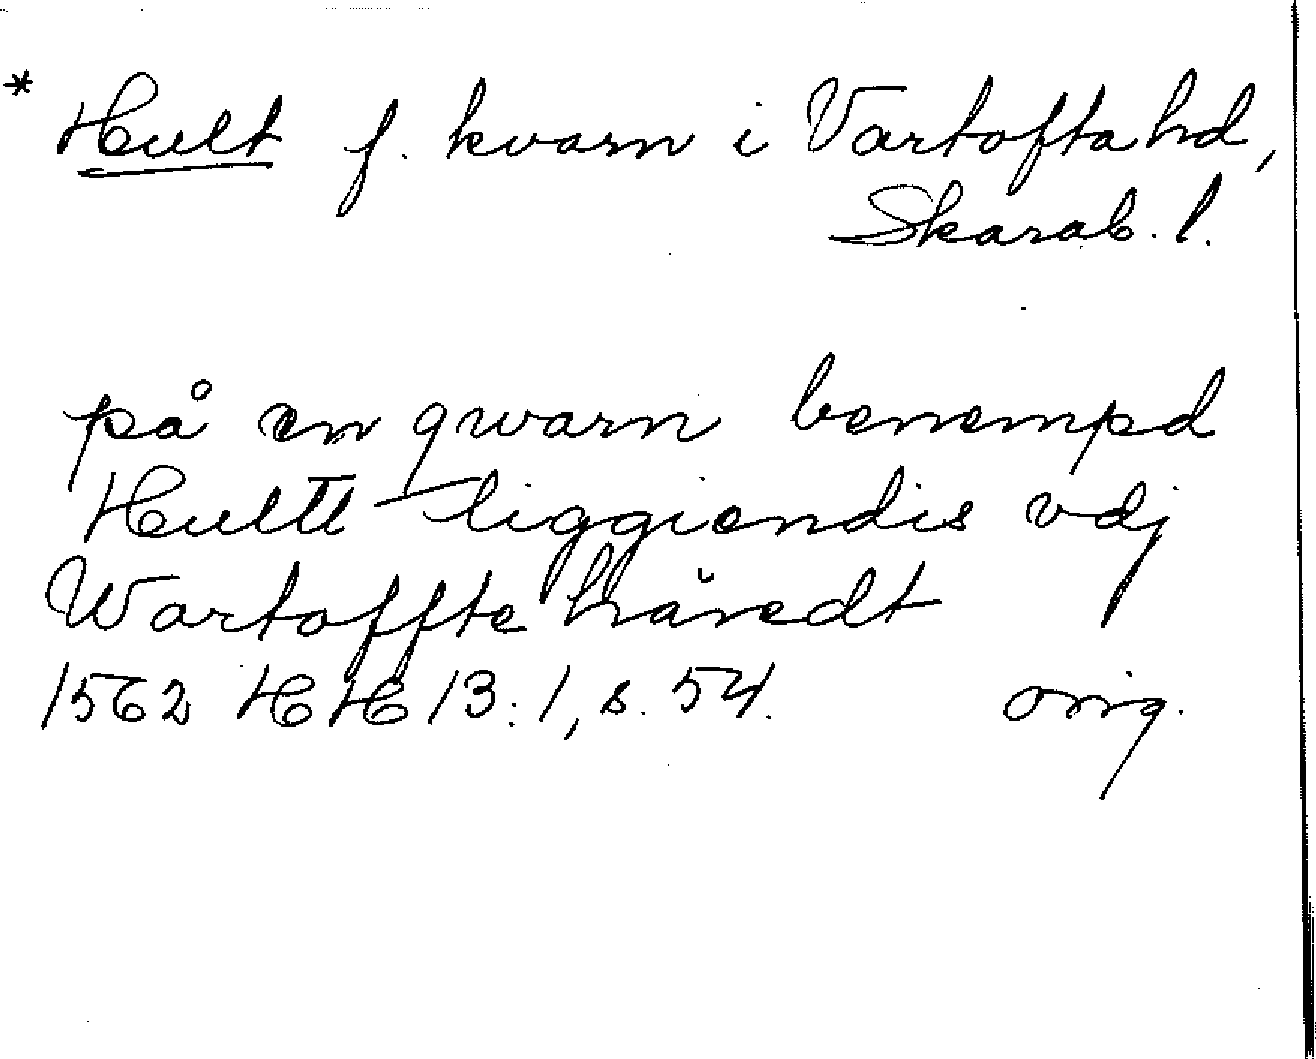 * Hult f. kvarn i Vartofta hd,
Skarab. l.
på en qwarn benempd
Hultt liggiendis vdj
Wartoffte häredt
1562 HH 13:1, s. 54. orig.